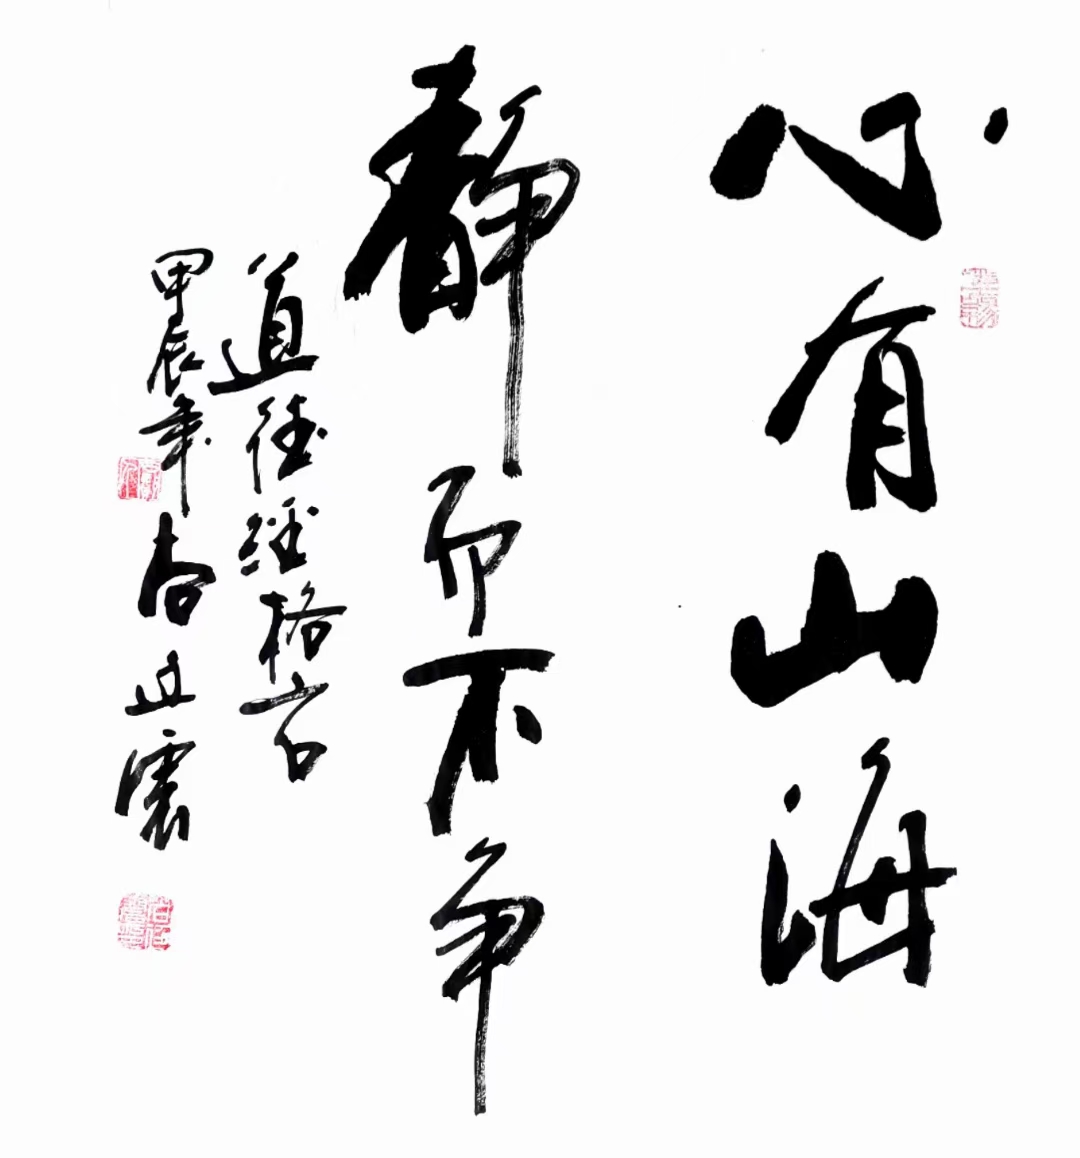 心有山海
静而不争
道德经格言
甲辰年